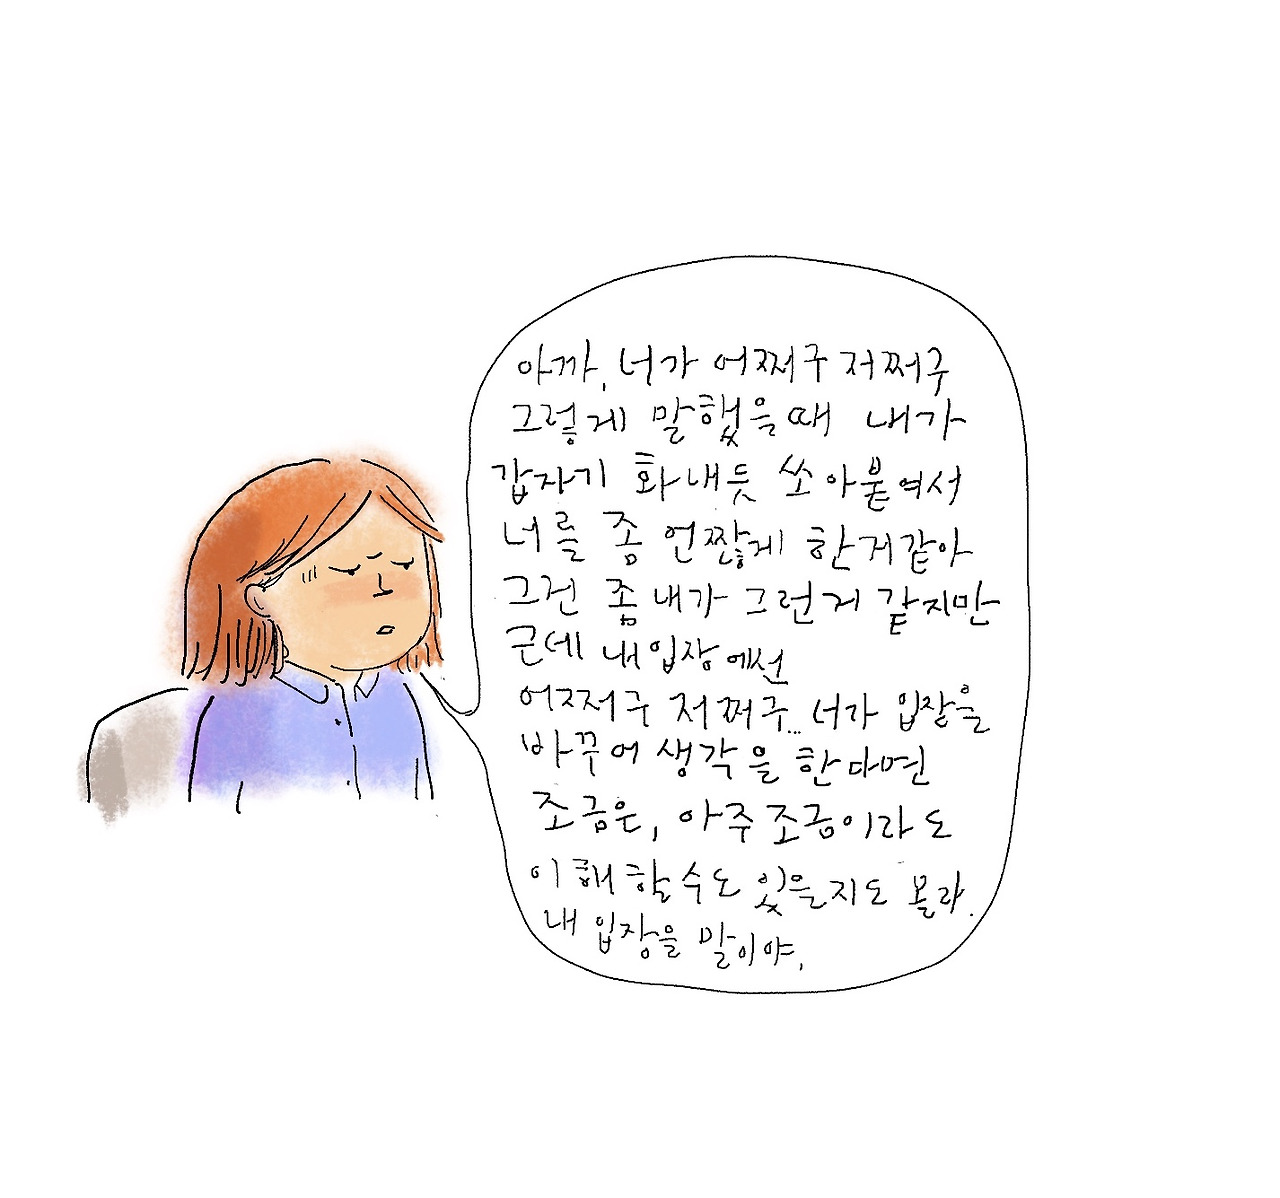 아까, 너가 어쩌구 저쩌구
그렇게 말했을때 내가
갑자기 화내듯 쏘아붙여서
너를 좀 언짢게 한거같아
그건 좀 내가 그런거 같지만
근데 내 입장에선
어쩌구 저쩌구... 너가 입장을
바꾸어 생각을 한다면
조금은, 아주 조금이라도
이해할 수도 있을지도 몰라.
내 입장을 말이야,